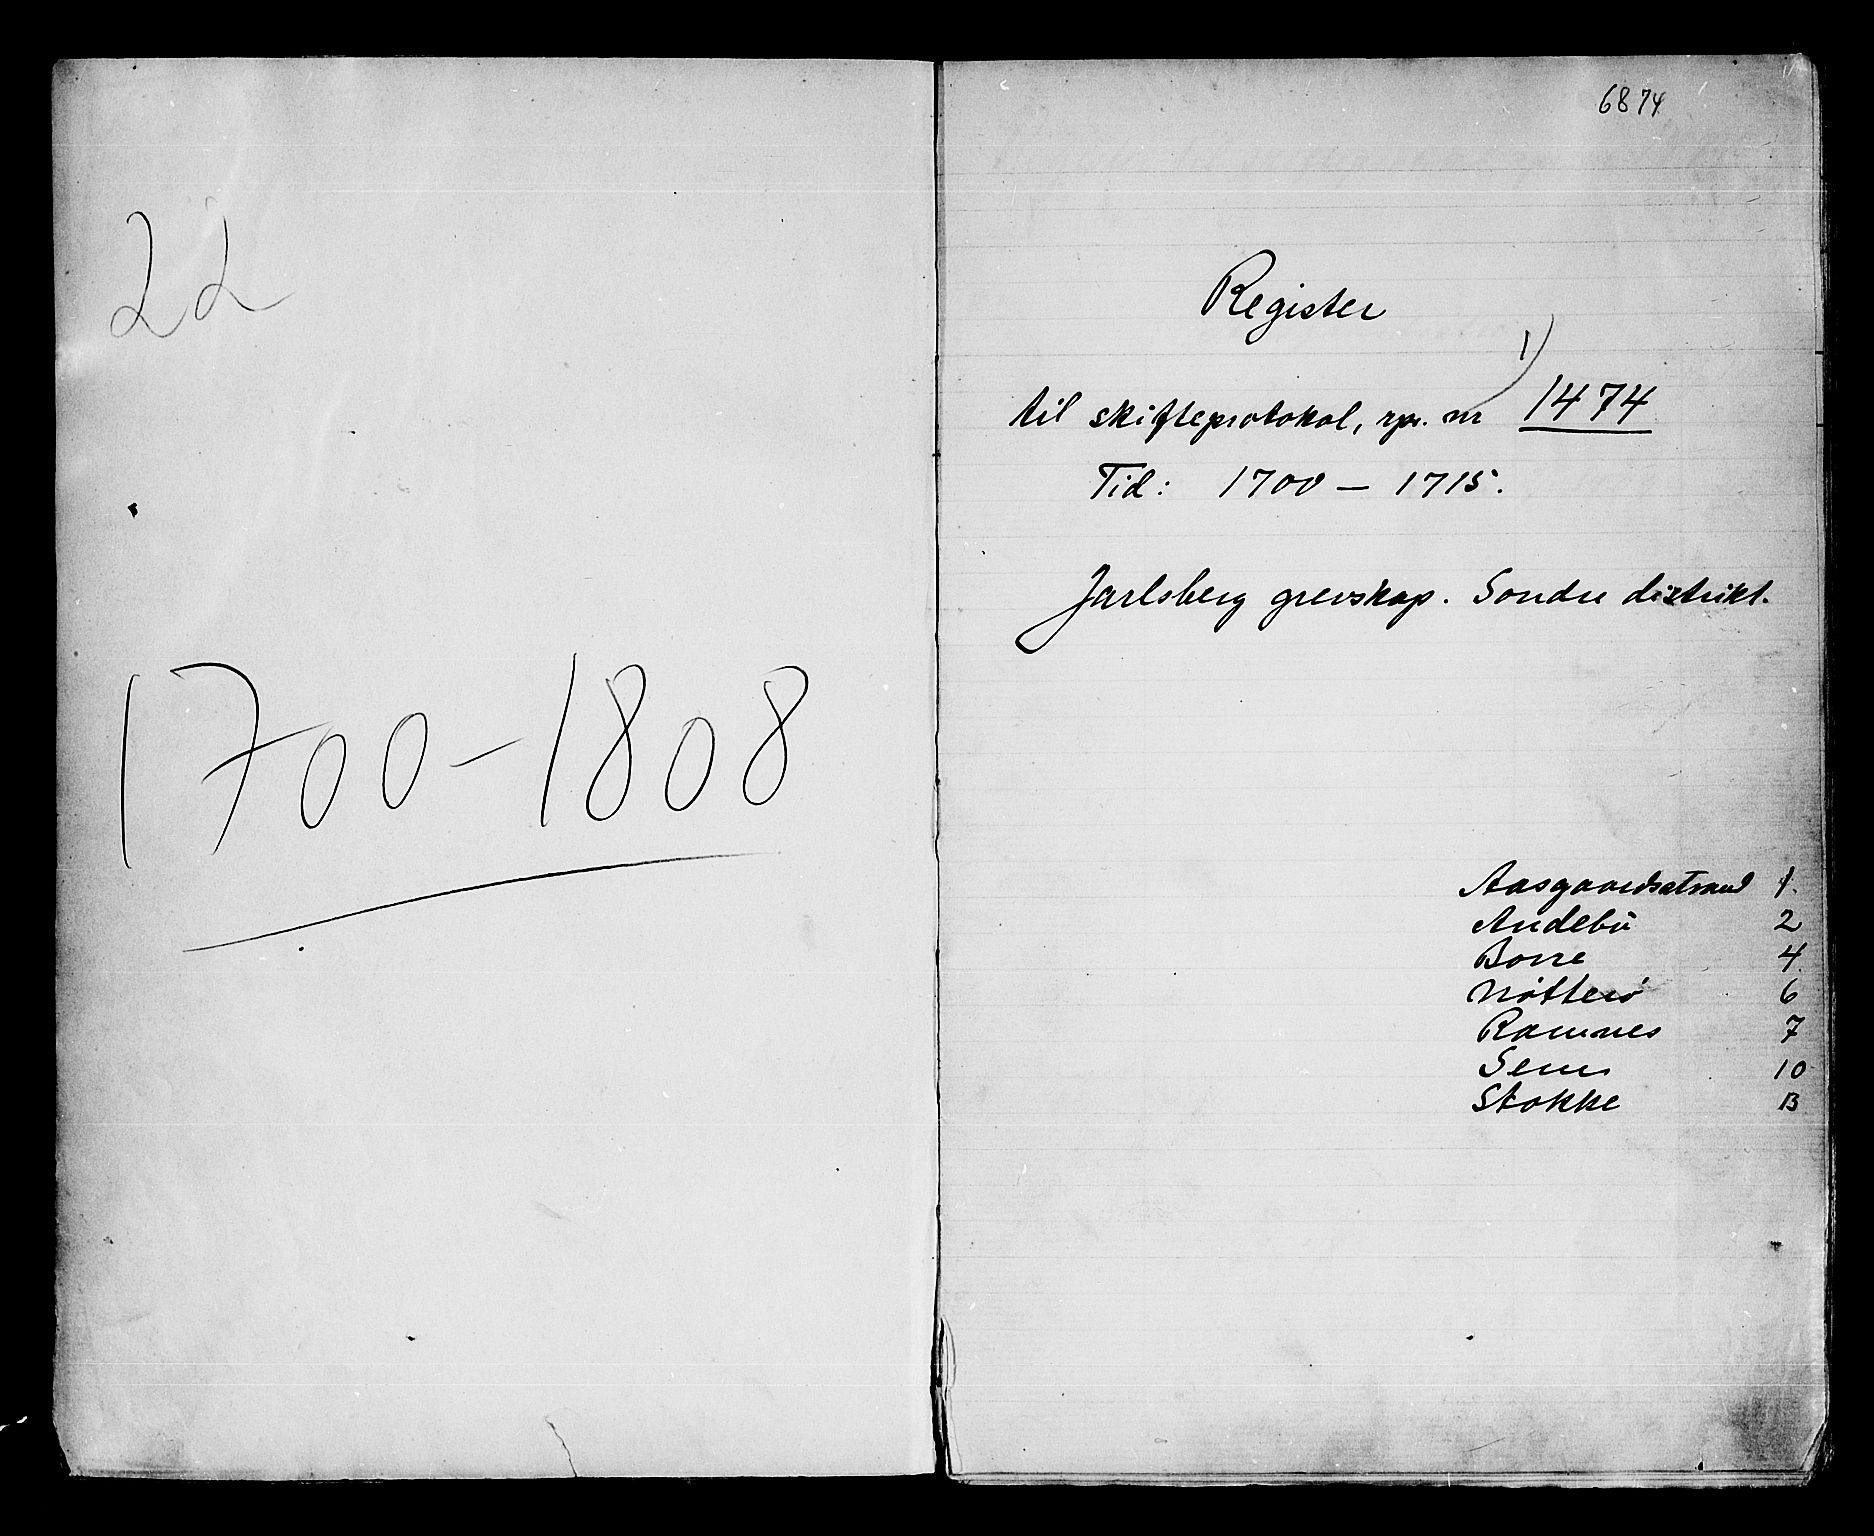 22
1700-1808
6874
Register
1)
til skifteprotokol, rpr. nr 1474
Tid: 1700 — 1715.
Jarlsberg grevskap. Söndre distrikt.
Aasgaardsstrand 1.
Andebö 2
Borre 4.
Nötterö 6
Ramnes 7
Sem 10
Stokke 13